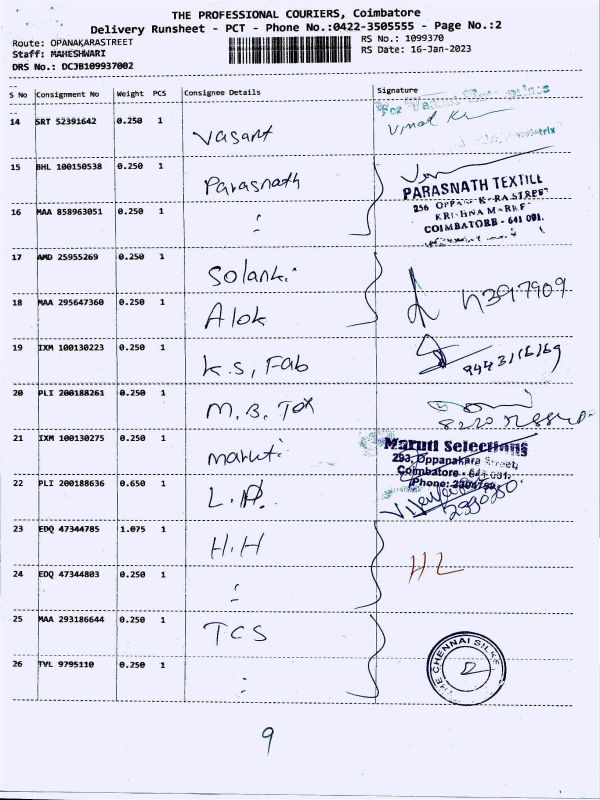 THE PROFESSIONAL COURIERS, Coimbatore
Delivery Runsheet - PCT - Phone No.:0422-3505555 - Page No.:2
Route: OPANAKARASTREET
RS No.: 1099370
Staff: MAHESHWARI
RS Date: 16-Jan-2023
DRS No.: DCJB109937002
S No Consignment No Weight PCS Consignee Details Signature
For Vasant
Vinod K
14 SRT 52391642 0.250 1 Vasant
15 BHL 100150538 0.250 1 Parasnath
PARASNATH TEXTILE
256 OPPANAKARA STREET
KRISHNA MARKET
COIMBATORE - 641 001.
16 MAA 858963051 0.250 1 "
17 AMD 25955269 0.250 1 Solanki
18 MAA 295647360 0.250 1 Alok
19 IXM 100130223 0.250 1 K.S, Fab
9443116169
20 PLI 200188261 0.250 1 M.B. Tex
21 IXM 100130275 0.250 1 Maruti
Maruti Selections
293, Oppanakara Street,
Coimbatore - 641 001.
Phone:
22 PLI 200188636 0.650 1 L.P.
23 EDQ 47344785 1.075 1 H.H
HL
24 EDQ 47344803 0.250 1 "
25 MAA 293186644 0.250 1 TCS
THE CHENNAI SILKS
26 TVL 9795110 0.250 1 "
9